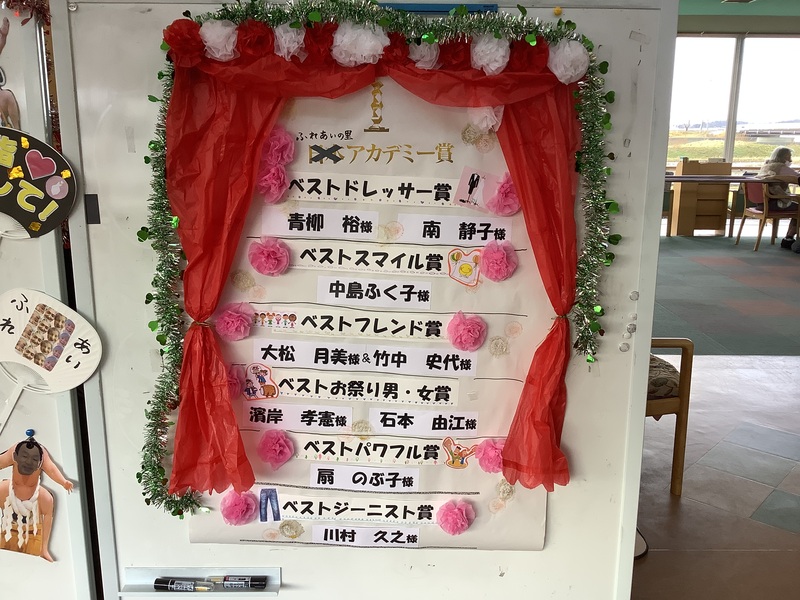 ふれあいの里
アカデミー賞
ベストドレッサー賞
青柳 裕様 南 静子様
ベストスマイル賞
中島ふく子様
ベストフレンド賞
大松 月美様&竹中 史代様
ベストお祭り男・女賞
濱岸 孝憲様 石本 由江様
ベストパワフル賞
扇 のぶ子様
ベストジーニスト賞
川村 久之様
して!
ふれ
あい